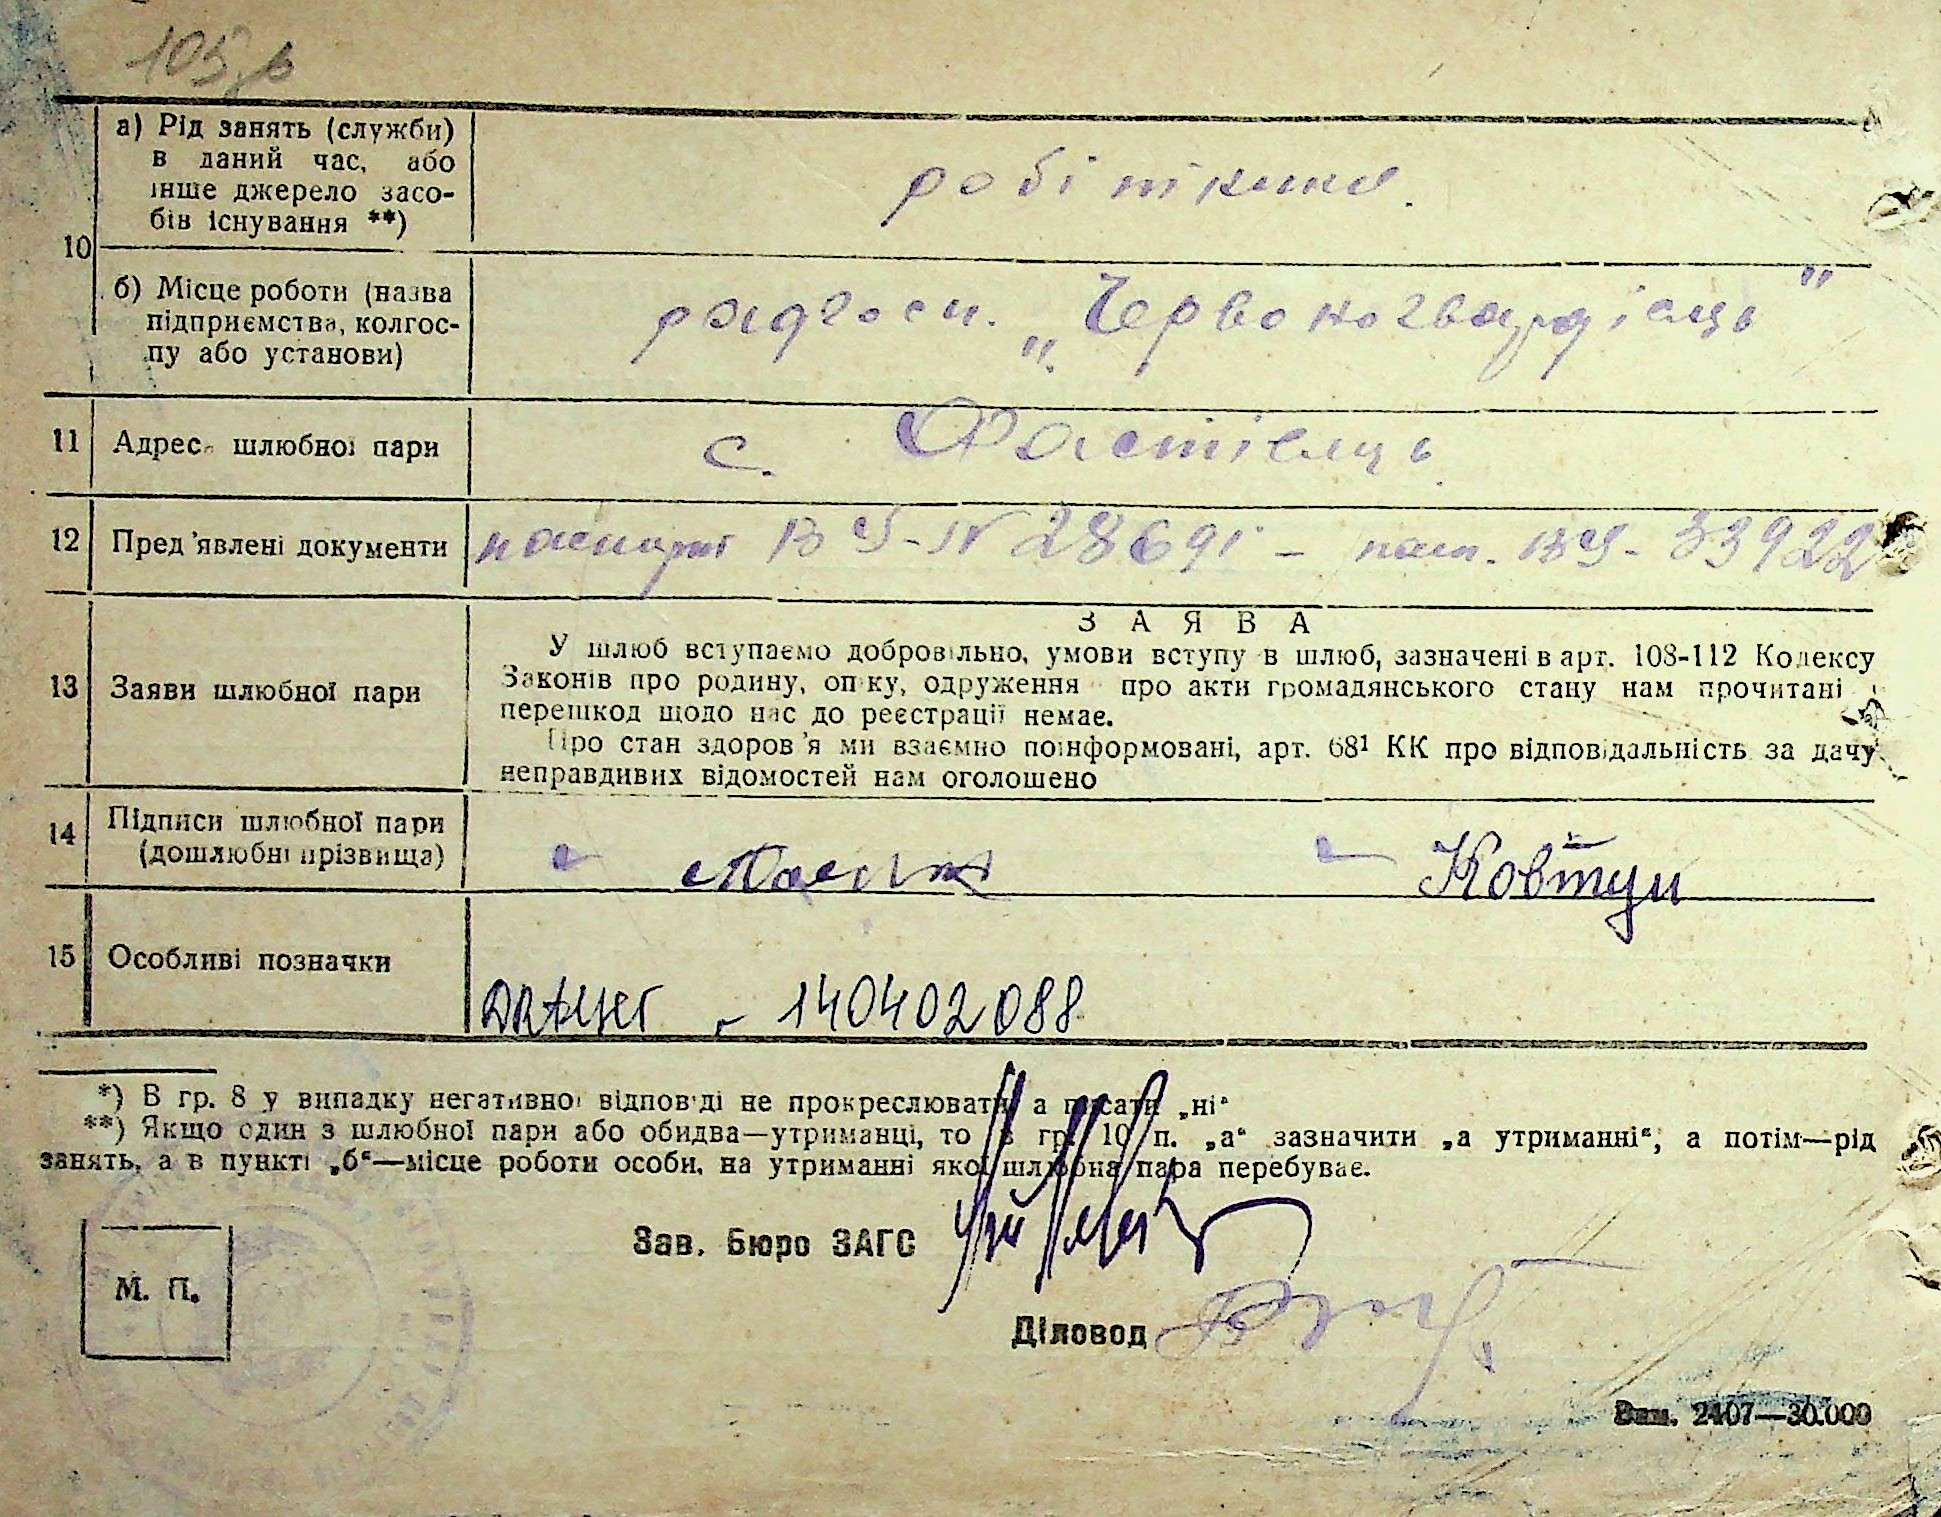 а) Рід занять (служби)
в даний час, або
інше джерело засо-
бів існування **)
робітниця.
10
б) Місце роботи (назва
підприємства, колгос-
пу або установи)
радгосп. „Червоногвардієць"
11 Адреса шлюбної пари с. Фастієць
12 Пред'явлені документи паспорт ВЭ-N 28691 - пасп. ВЭ- 33922
З А Я В А
У шлюб вступаємо добровільно, умови вступу в шлюб, зазначені в арт. 108-112 Кодексу
13 Заяви шлюбної пари Законів про родину, опіку, одруження про акти громадянського стану нам прочитані
перешкод щодо нас до реєстрації немає.
Про стан здоров'я ми взаємно поінформовані, арт. 68¹ КК про відповідальність за дачу
неправдивих відомостей нам оголошено
14 Підписи шлюбної пари
(дошлюбні прізвища)
Ковтун
15 Особливі позначки
140402088
*) В гр. 8 у випадку негативної відповіді не прокреслювати а писати „ні“
**) Якщо один з шлюбної пари або обидва—утриманці, то в гр. 10 п. „а“ зазначити „а утриманні“, а потім—рід
занять, а в пункті „б“—місце роботи особи, на утриманні якої шлюбна пара перебуває.
Зав. Бюро ЗАГС
М. П.
Діловод
Зам. 2407—30.000